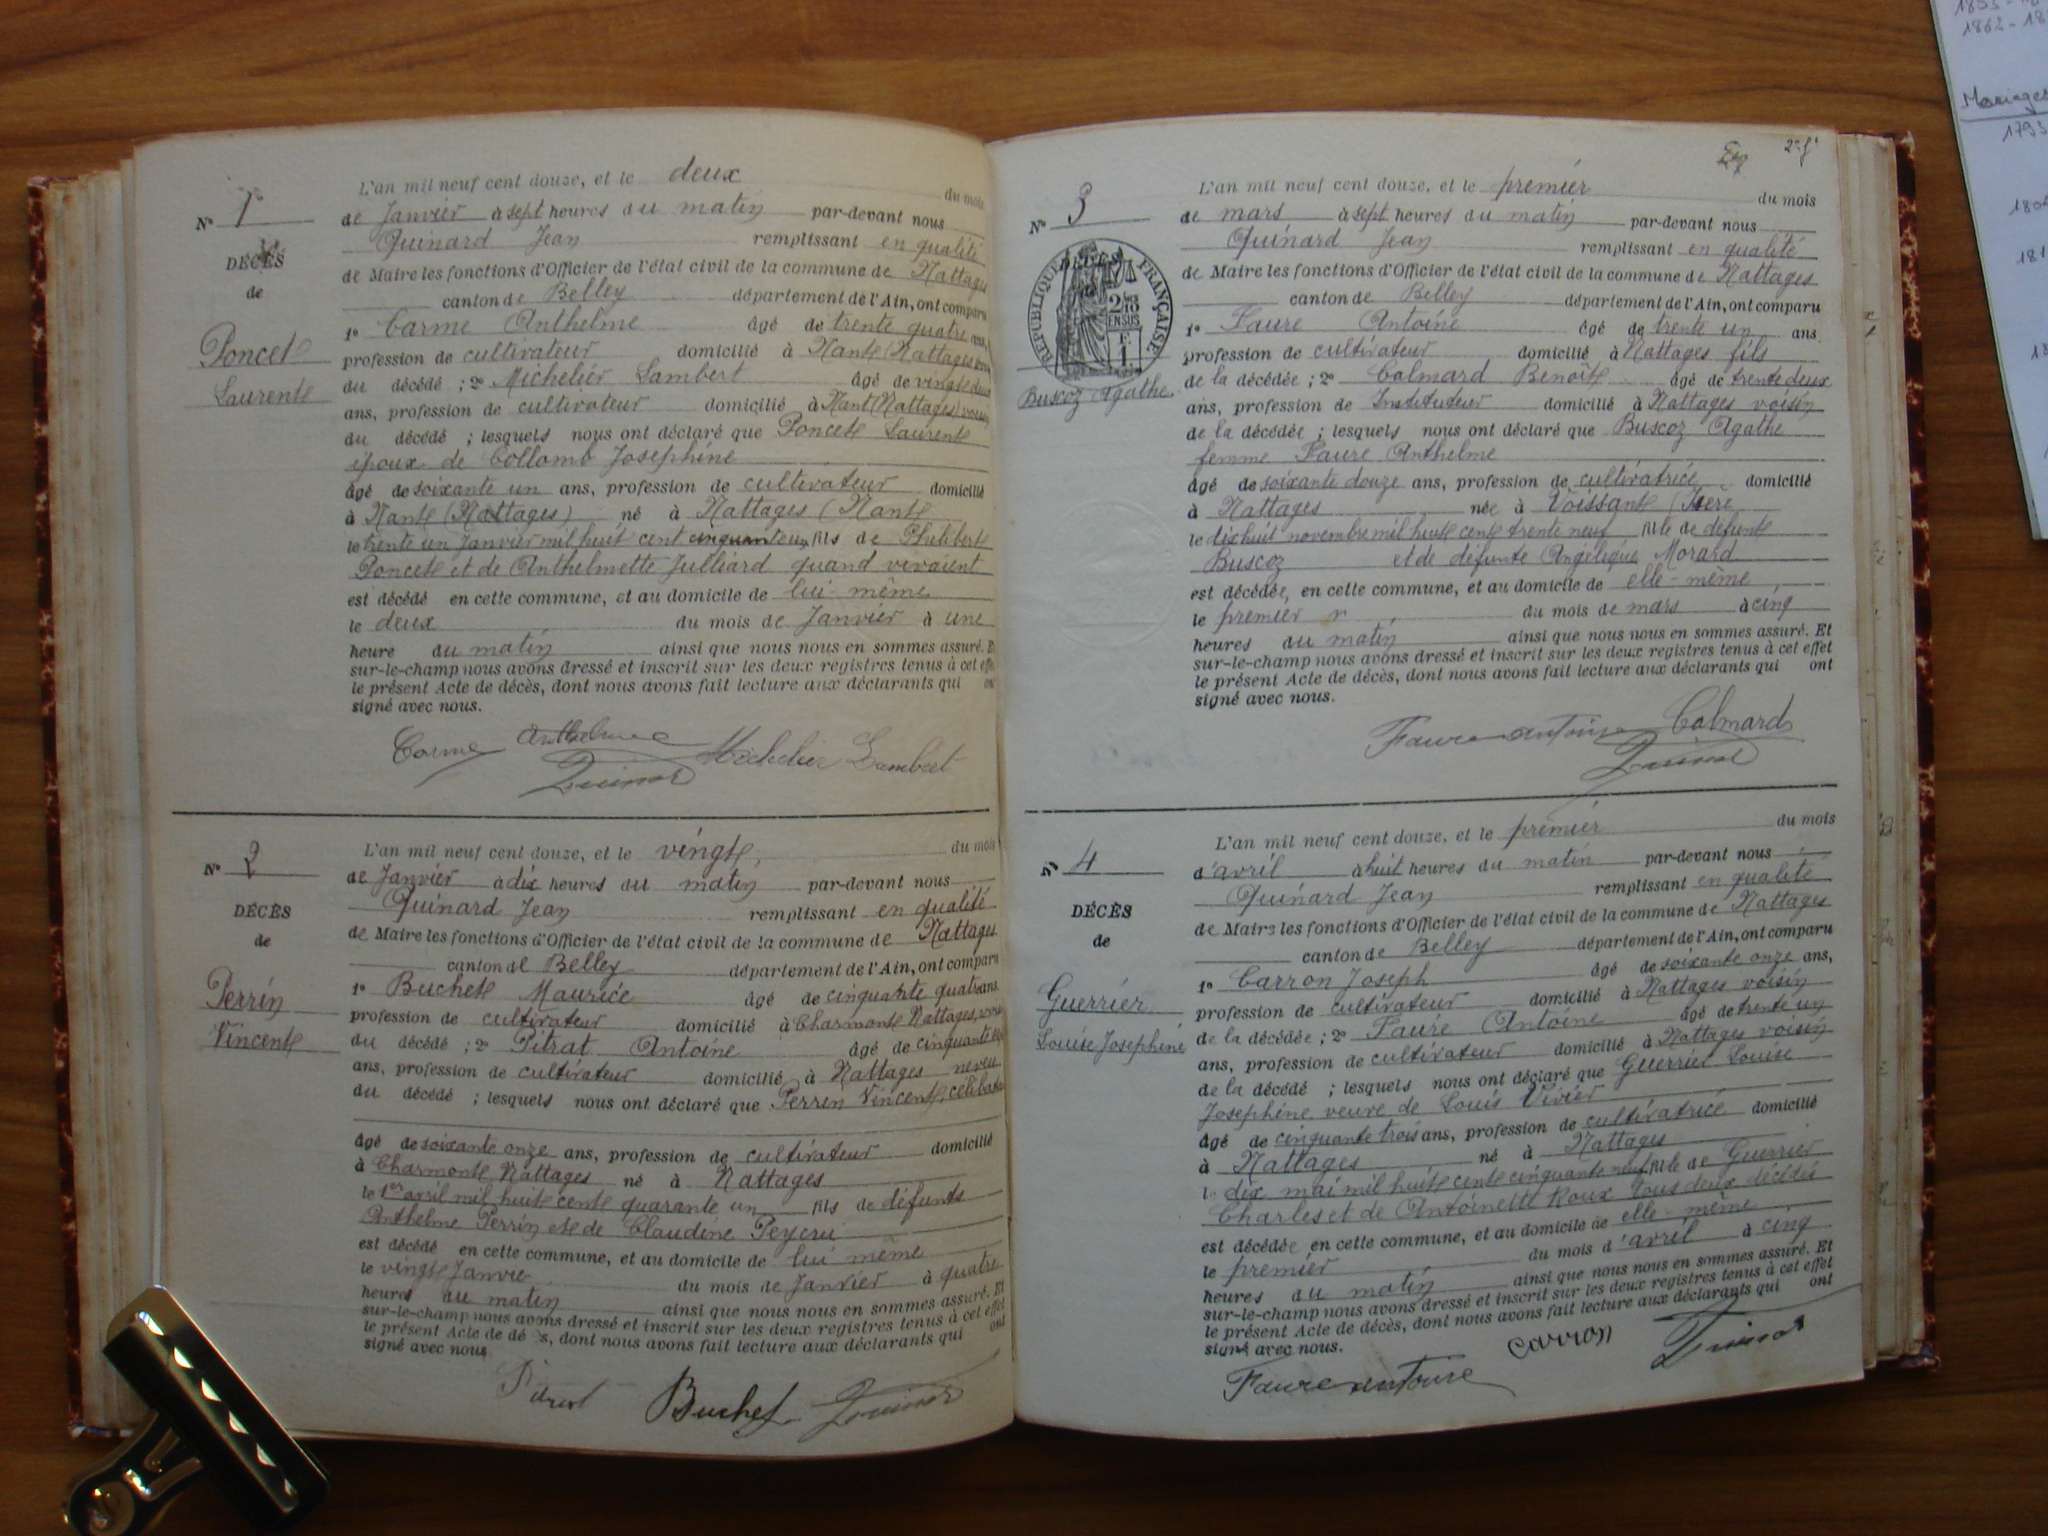 L'an mil neuf cent douze, et le deux du mois
No 1 de Janvier à sept heures du matin par-devant nous
Quinard Jean remplissant en qualité
DÉCÈS
de Maire les fonctions d'Officier de l'état civil de la commune de Nattages
de
canton de Belley département de l'Ain, ont comparu
1º Carme Anthelme âgé de trente quatre ans,
Poncet
profession de cultivateur domicilié à Nant (Nattages)
Laurent
du décédé ; 2º Michelier Lambert âgé de vingt deux
ans, profession de cultivateur domicilié à Nant (Nattages) voisin
du décédé ; lesquels nous ont déclaré que Poncet Laurent
époux de Collomb Josephine
âgé de soixante un ans, profession de cultivateur domicilié
à Nant (Nattages) né à Nattages (Nant
le trente un Janvier mil huit cent fils de Philibert
Poncet et de Anthelmette Julliard quand vivaient
est décédé en cette commune, et au domicile de lui-même
le deux du mois de Janvier à une
heure du matin ainsi que nous nous en sommes assuré. Et
sur-le-champ nous avons dressé et inscrit sur les deux registres tenus à cet effet
le présent Acte de décès, dont nous avons fait lecture aux déclarants qui ont
signé avec nous.
Carme Anthelme Michelier Lambert
Quinard
L'an mil neuf cent douze, et le vingt, du mois
No 2 de Janvier à dix heures du matin par-devant nous
Quinard Jean remplissant en qualité
DÉCÈS
de Maire les fonctions d'Officier de l'état civil de la commune de Nattages
de
canton de Belley département de l'Ain, ont comparu
1º Buchet Maurice âgé de cinquante quatre ans
Perrin
profession de cultivateur domicilié à Charmont Nattages, voisin
Vincent
du décédé ; 2º Pitrat Antoine âgé de cinquante
ans, profession de cultivateur domicilié à Nattages neveu
du décédé ; lesquels nous ont déclaré que Perrin Vincent, célibataire
âgé de soixante onze ans, profession de cultivateur domicilié
à Charmont Nattages né à Nattages
le 1er avril mil huit cent quarante un fils de défunts
Anthelme Perrin et de Claudine Peycru
est décédé en cette commune, et au domicile de lui même
le vingt Janvier du mois de Janvier à quatre
heures du matin ainsi que nous nous en sommes assuré. Et
sur-le-champ nous avons dressé et inscrit sur les deux registres tenus à cet effet
le présent Acte de décès, dont nous avons fait lecture aux déclarants qui ont
signé avec nous
Pitrat Buchet Quinard
2e f
L'an mil neuf cent douze, et le premier du mois
No 3 de mars à sept heures du matin par-devant nous
Quinard Jean remplissant en qualité
de Maire les fonctions d'Officier de l'état civil de la commune de Nattages
RÉPUBLIQUE FRANÇAISE
2/10 EN SUS
F. 1
canton de Belley département de l'Ain, ont comparu
1º Faure Antoine âgé de trente un ans
profession de cultivateur domicilié à Nattages fils
Buscoz Agathe
de la décédée ; 2º Calmard Benoît âgé de trente deux
ans, profession de Instituteur domicilié à Nattages voisin
de la décédée ; lesquels nous ont déclaré que Buscoz Agathe
femme Faure Anthelme
âgé de soixante douze ans, profession de cultivatrice domicilié
à Nattages née à Voissant (Isère
le dix huit novembre mil huit cent trente neuf fille de défunt
Buscoz et de défunte Angélique Morard
est décédée, en cette commune, et au domicile de elle-même
le premier du mois de mars à cinq
heures du matin ainsi que nous nous en sommes assuré. Et
sur-le-champ nous avons dressé et inscrit sur les deux registres tenus à cet effet
le présent Acte de décès, dont nous avons fait lecture aux déclarants qui ont
signé avec nous.
Faure antoine Calmard
Quinard
L'an mil neuf cent douze, et le premier du mois
No 4 d'avril à huit heures du matin par-devant nous
Quinard Jean remplissant en qualité
DÉCÈS
de Maire les fonctions d'Officier de l'état civil de la commune de Nattages
de
canton de Belley département de l'Ain, ont comparu
1º Carron Joseph âgé de soixante onze ans,
Guerrier
profession de cultivateur domicilié à Nattages voisin
Louise Josephine
de la décédée ; 2º Faure Antoine âgé de trente un
ans, profession de cultivateur domicilié à Nattages voisin
de la décédé ; lesquels nous ont déclaré que Guerrier Louise
Josephine veuve de Louis Vivier
âgé de cinquante trois ans, profession de cultivatrice domicilié
à Nattages né à Nattages
le dix mai mil huit cent cinquante neuf fille de Guerrier
Charles et de Antoinette Roux tous deux décédés
est décédée en cette commune, et au domicile de elle-même
le premier du mois d'avril à cinq
heures du matin ainsi que nous nous en sommes assuré. Et
sur-le-champ nous avons dressé et inscrit sur les deux registres tenus à cet effet
le présent Acte de décès, dont nous avons fait lecture aux déclarants qui ont
signé avec nous.
Faure antoine carron Quinard
1862-18
Mariages
1793